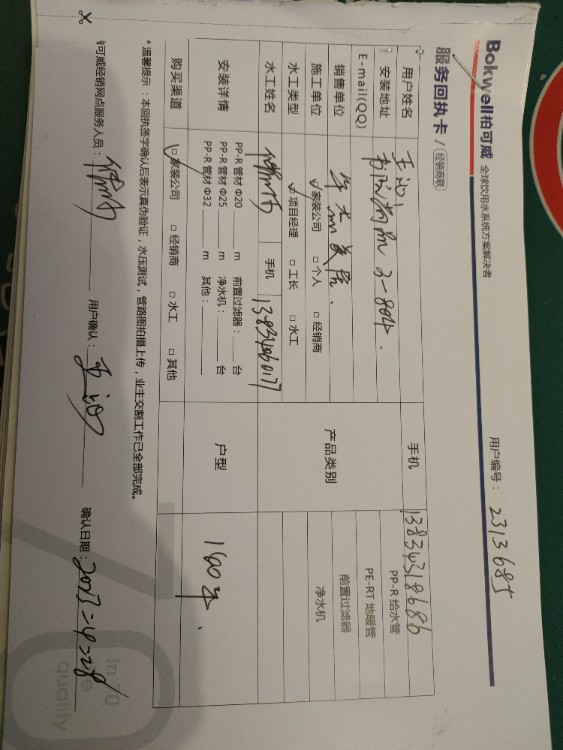 Bokwell柏可威 全球饮用水系统方案解决者
用户编号： 2313685
服务回执卡 / 经销商联
用户姓名 王
手机 13834318686
安装地址 3-804.
E-mail(QQ)
销售单位
产品类别
PP-R 给水管
PE-RT 地暖管
前置过滤器
净水机
施工单位 ☑家装公司 □个人 □经销商
水工类型 ☑项目经理 □工长 □水工
水工姓名
手机 13834260177
安装详情
PP-R 管材 Φ20 m 前置过滤器： 台
PP-R 管材 Φ25 m 净水机： 台
PP-R 管材 Φ32 m 其他：
户型 160平.
购买渠道 ☑家装公司 □经销商 □水工 □其他
* 温馨提示：本回执签字确认后表示真伪验证，水压测试，管路图拍摄上传，业主交割工作已全部完成。
可威经销网点服务人员：
用户确认：王
确认日期：2023-4-28
In 10
quality